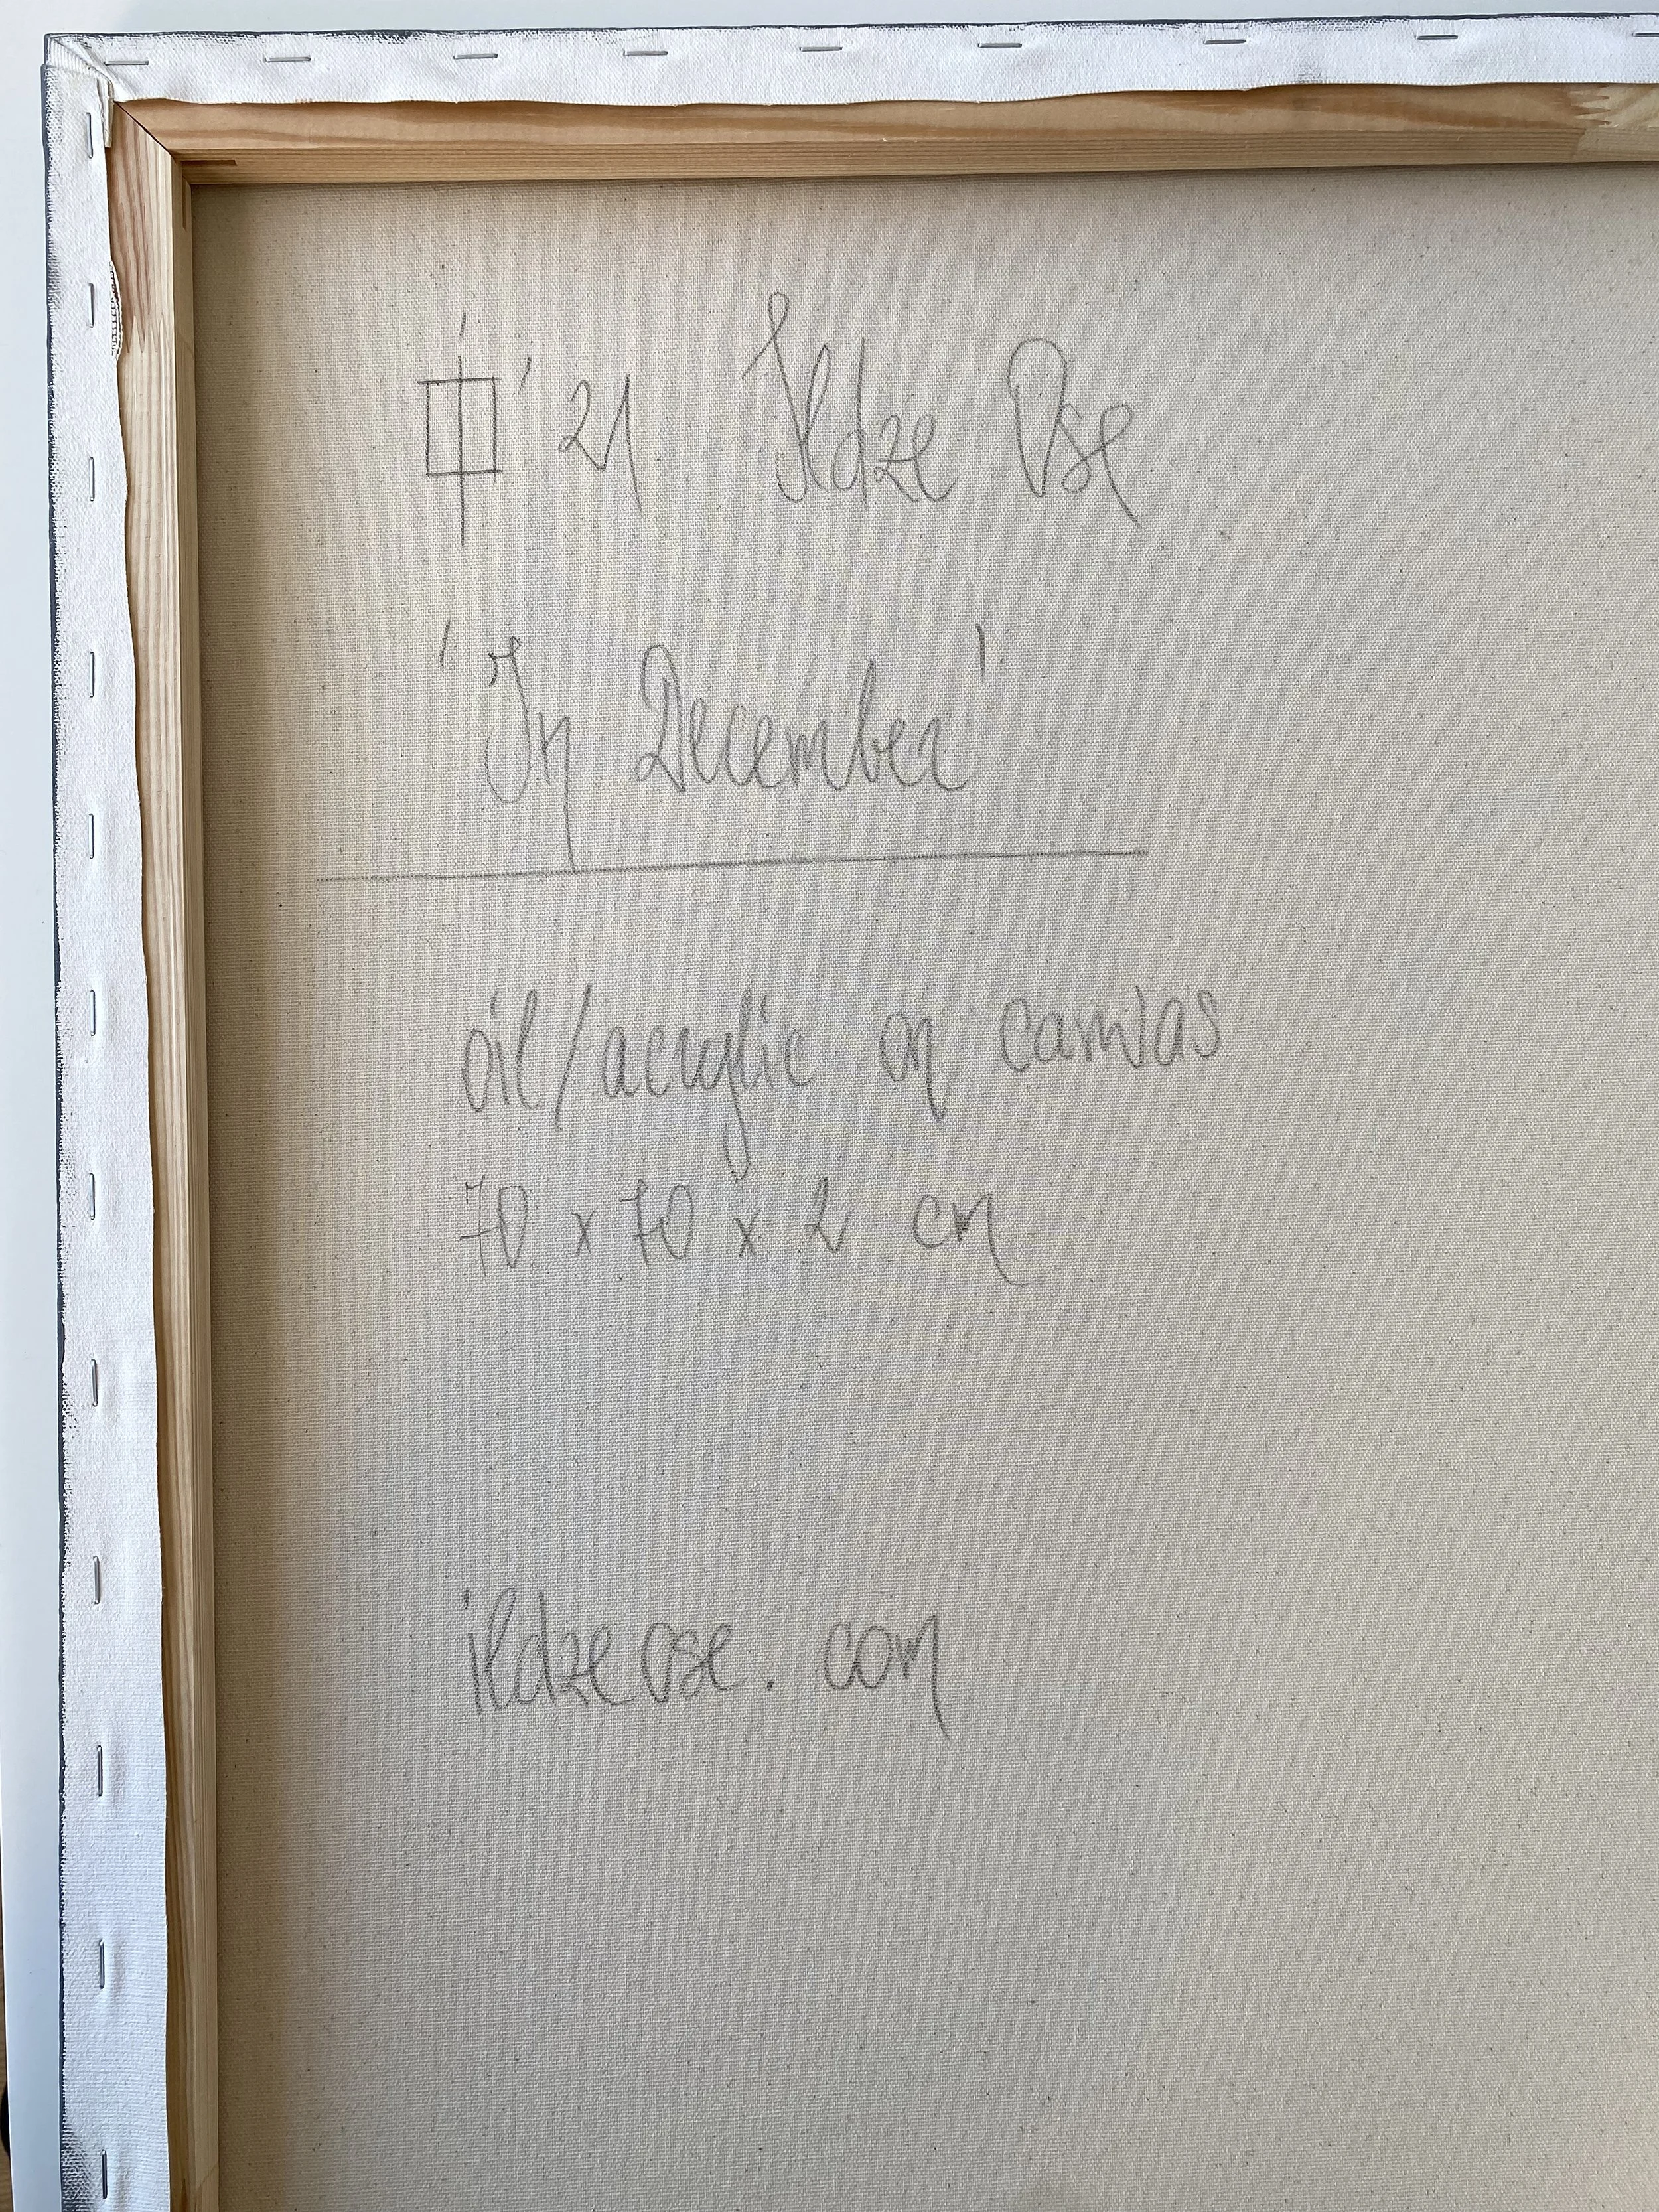 '21 Ildze Ose
'In December'
oil/acrylic on canvas
70 x 70 x 2 cm
ildzeose.com